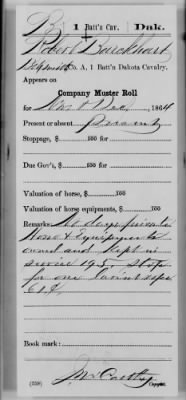 B | 1 Batt'n Cav. | Dak.
Robert Burckhart
Co. A, 1 Batt'n Dakota Cavalry.
Appears on
Company Muster Roll
for Nov & Dec, 1864
Present or absent Present
Stoppage, $ 100 for
Due Gov't, $ 100 for
Valuation of horse, $ 100
Valuation of horse equipments, $ 100
Remarks: No days private
Horse & Equipments
owned and kept in
service 195. Stop
for one
61.¢
Book mark:
(358) Copyist.